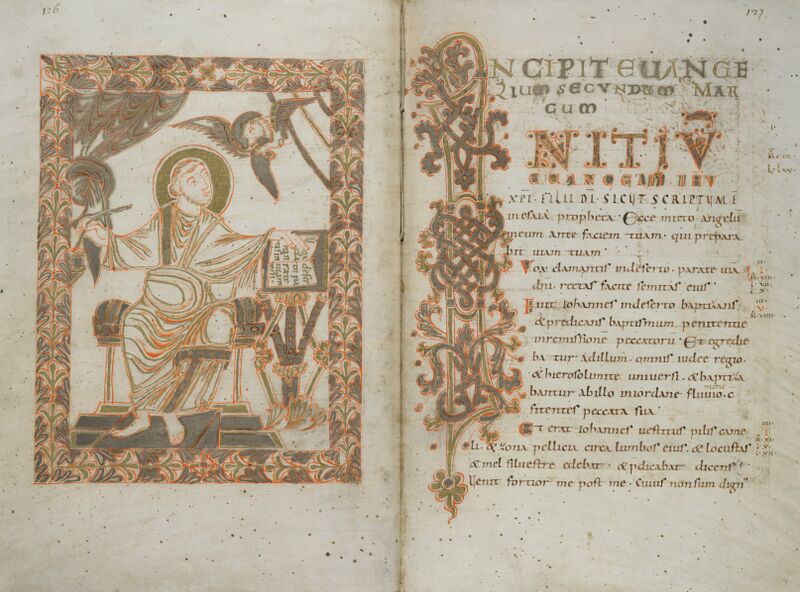 126
127
INCIPIT EVANGE
LIUM SECVNDUM MAR
CUM
INITIV̅
EVANGELII IHV
XPI · FILII DI · SICVT SCRIPTUM Ē
in esaia propheta · Ecce mitto angelu
meum ante faciem tuam · qui prepara
bit uiam tuam ·
Vox clamantis in deserto · parate uia
dni · rectas facite semitas eius ·
Fuit Iohannes in deserto baptizans
& predicans baptismum penitentie
in remissione peccatoru · Et egredie
ba tur ad illum · omnis iudee regio ·
& hierosolimite uniuersi · & baptiza
bantur ab illo in iordane fluuio · c
fitentes peccata sua ·
Et erat Iohannes uestitus pilis came
li · & zona pellicia circa lumbos eius · & locustas
& mel siluestre edebat · & p̄dicabat dicens ·
Uenit fortior me post me · cuius non sum dign'